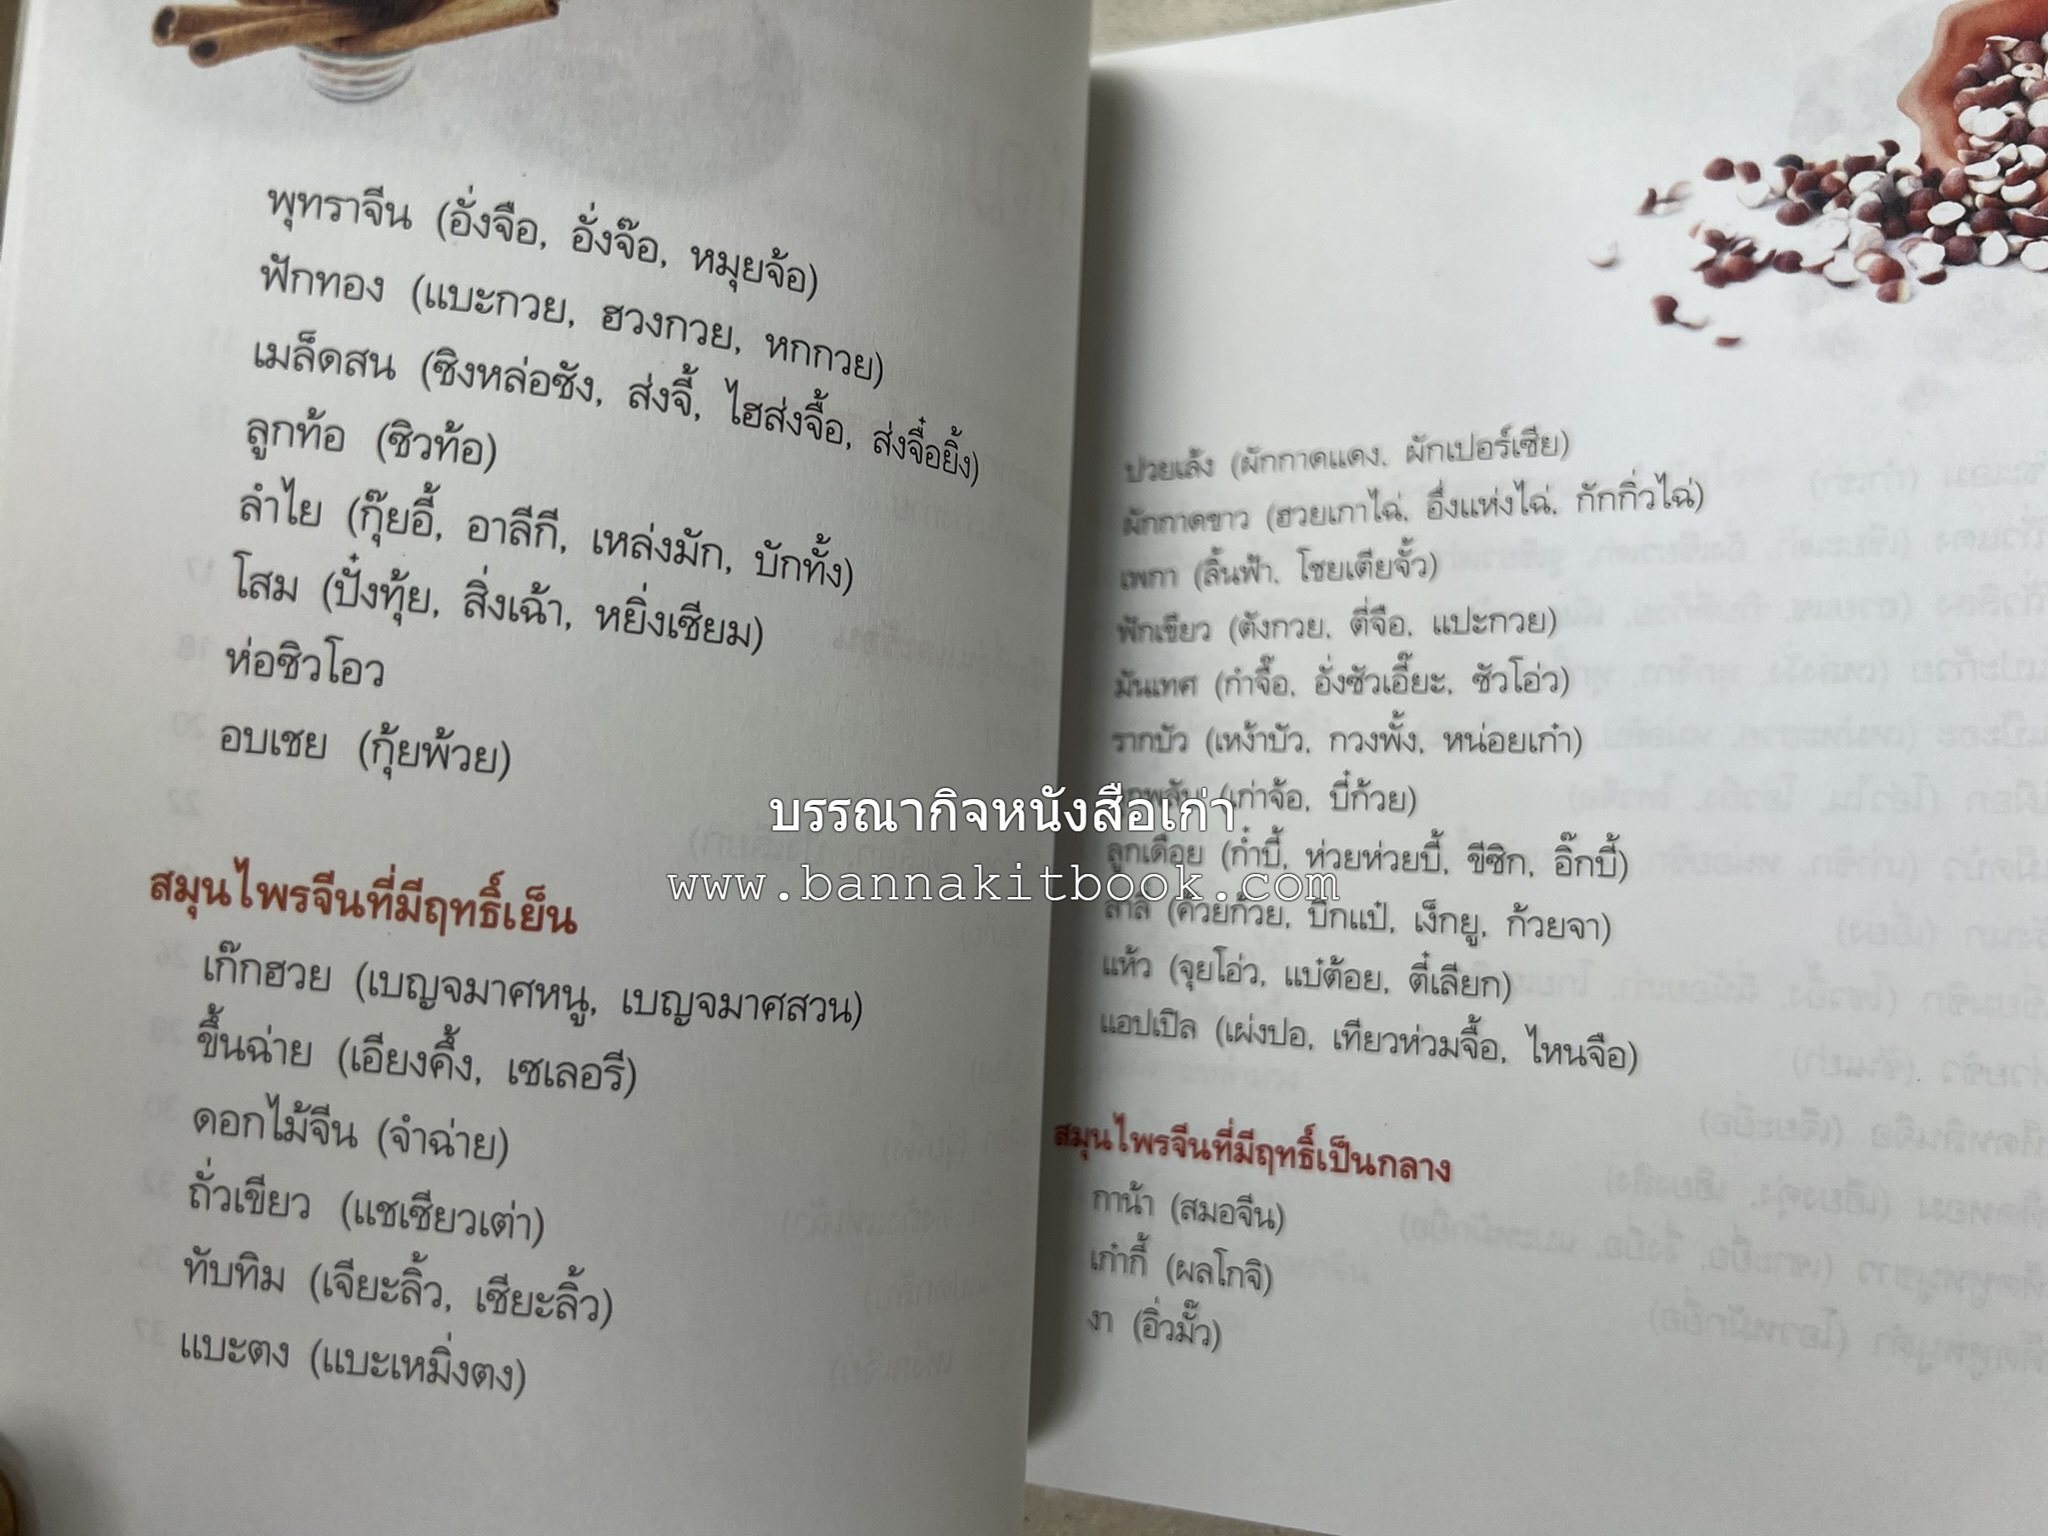 พุทราจีน (อั่งจือ, อั่งจ๊อ, หมุยจ้อ)
ฟักทอง (แบะกวย, ฮวงกวย, หกกวย)
เมล็ดสน (ชิงหล่อชัง, ส่งจี้, ไฮส่งจื้อ, ส่งจื๋อยิ้ง)
ลูกท้อ (ชิวท้อ)
ลำไย (กุ๊ยอี้, อาลีกี, เหล่งมัก, บักทั้ง)
โสม (ปั๋งทุ้ย, สิ่งเฉ้า, หยิ่งเซียม)
ห่อชิวโอว
อบเชย (กุ้ยพ้วย)
สมุนไพรจีนที่มีฤทธิ์เย็น
เก๊กฮวย (เบญจมาศหนู, เบญจมาศสวน)
ขึ้นฉ่าย (เอียงคึ้ง, เซเลอรี)
ดอกไม้จีน (จำฉ่าย)
ถั่วเขียว (แชเชียวเต่า)
ทับทิม (เจียะลิ้ว, เซียะลิ้ว)
แบะตง (แบะเหมิ่งตง)
ปวยเล้ง (ผักกาดแดง, ผักเปอร์เซีย)
ผักกาดขาว (ฮวยเกาไฉ่, อึ่งแห่งไฉ่, กักกิ่วไฉ่)
เพกา (ลิ้นฟ้า, โชยเตียจั้ว)
ฟักเขียว (ตังกวย, ตี่จือ, แปะกวย)
มันเทศ (กำจื๊อ, อั่งซัวเอี๊ยะ, ซัวโอ่ว)
รากบัว (เหง้าบัว, กวงพั้ง, หน่อยเก๋า)
ลูกพลับ (เก่าจ้อ, บี๋ก้วย)
ลูกเดือย (ก๋ำบี้, ห่วยห่วยบี้, ขีซิก, อิ๊กบี้)
สาลี่ (ค้วยก้วย, บิกแป๋, เง็กยู, ก้วยจา)
แห้ว (จุยโอ่ว, แบ๋ต้อย, ตี๋เลียก)
แอปเปิล (เผ่งปอ, เทียวห่วมจื้อ, ไหนจือ)
สมุนไพรจีนที่มีฤทธิ์เป็นกลาง
กาน้า (สมอจีน)
เก๋ากี้ (ผลโกจิ)
งา (อิ่วมั๊ว)
บรรณากิจหนังสือเก่า
www.bannakitbook.com